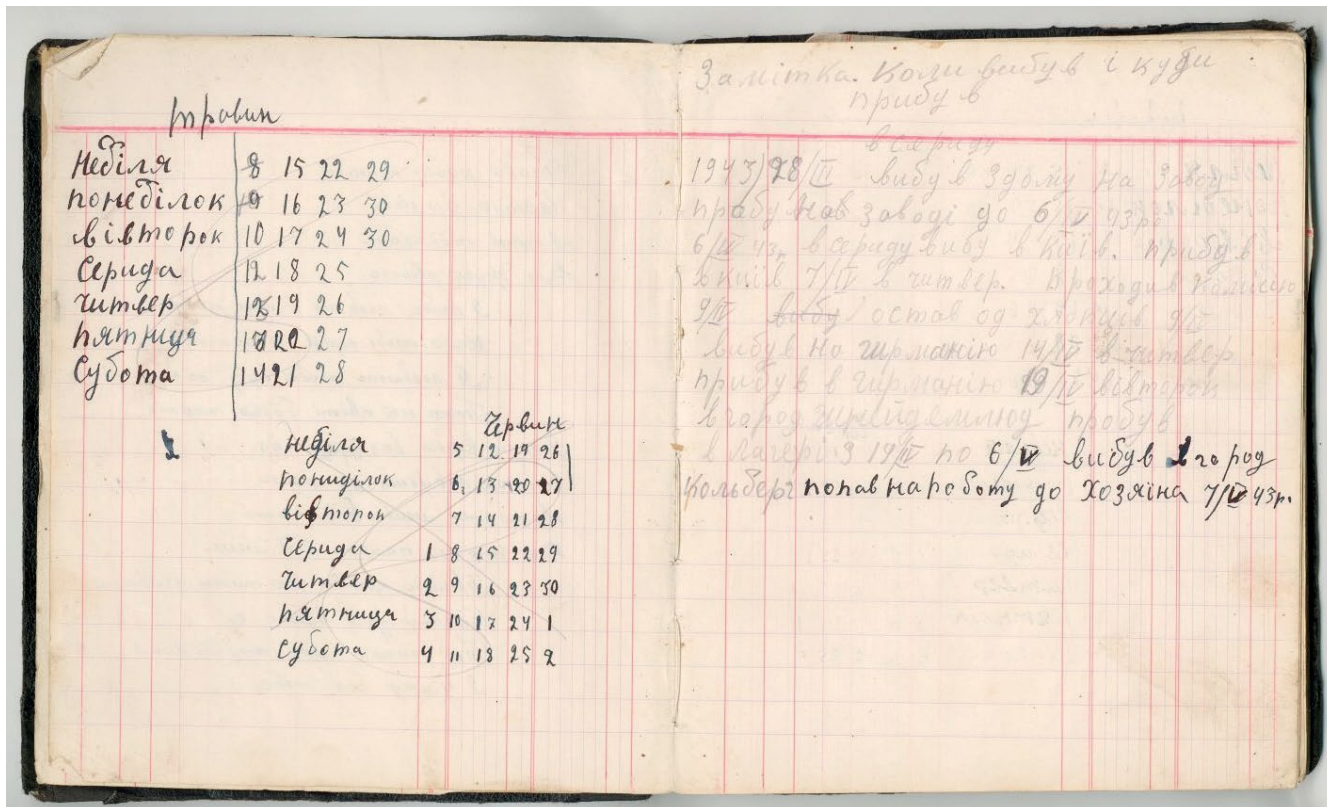 травин
Неділя 8 15 22 29
понеділок 9 16 23 30
вівторок 10 17 24 30
Серида 12 18 25
Читвер 19 26
пятниця 27
Субота 14 21 28
Червин
неділя 5 12 19 26
пониділок 6 13 20 27
вівторок 7 14 21 28
Серида 1 8 15 22 29
Читвер 2 9 16 23 30
пятниця 3 10 17 24 1
Субота 4 11 18 25 2
Замітка. Коли вибув і куди
прибув
в сериду
1943) 28/II вибув здому на завод
пробув на заводі до 6/IV 43р.
6/IV 43р. в сериду вибув в Київ. прибув
в Київ 7/IV в читвер. Проходив Комісію
9/IV вибув остав од хлопців 9/IV
вибув на гирманію 14/IV в читвер
прибув в гирманію 19/IV вівторок
в город пробув
в лагері з 19/IV по 6/V вибув в город
Кольберг попав на роботу до Хозяїна 7/V 43р.